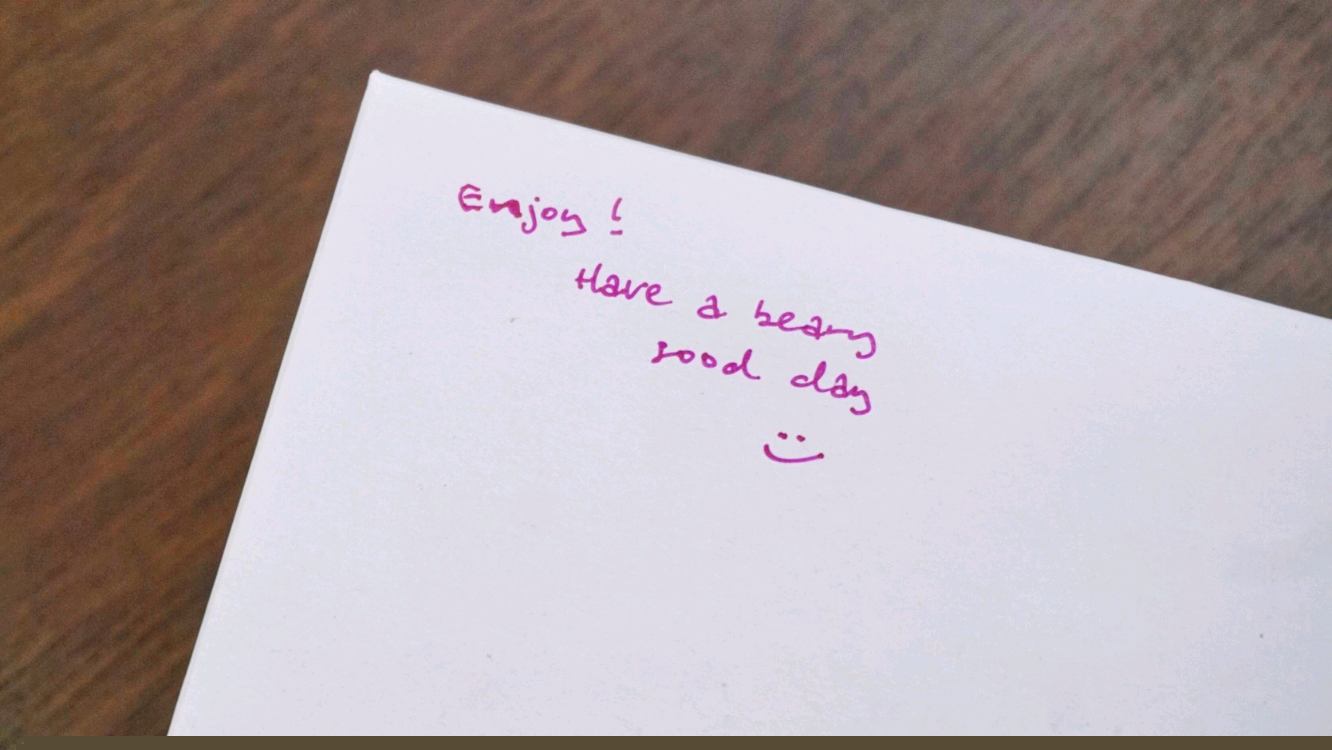 Enjoy !
Have a beary
good day